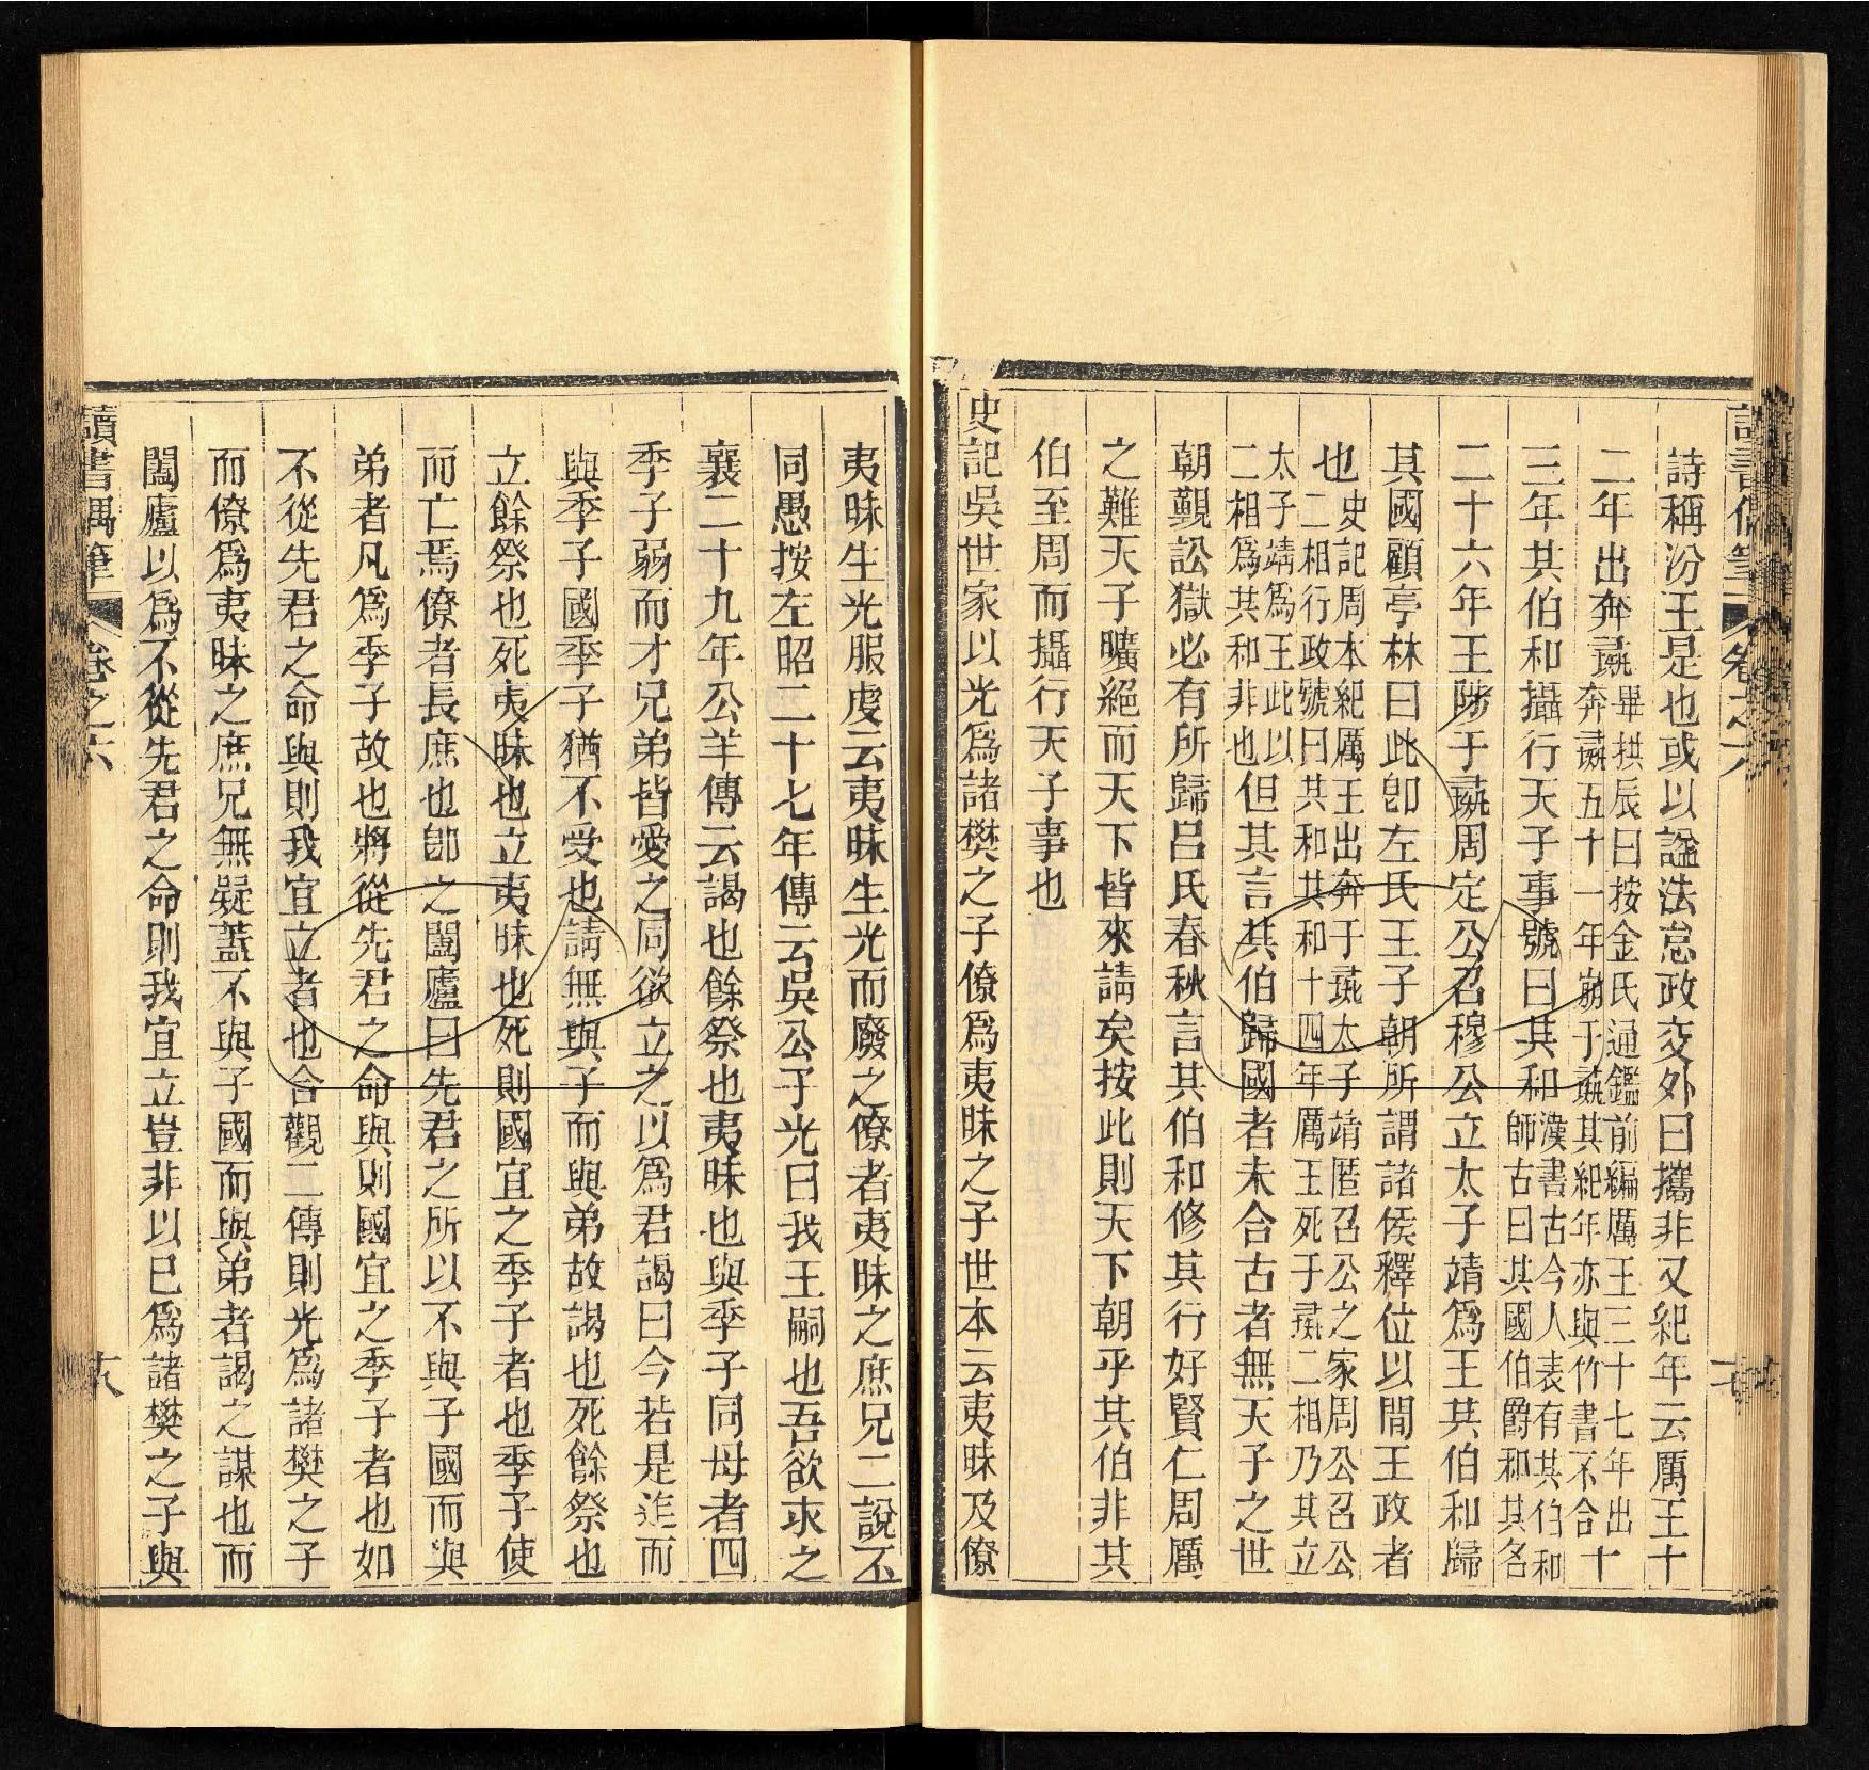 讀書偶筆 卷之六
詩稱汾王是也或以謚法怠政交外曰攜非又紀年云厲王十
二年出奔彘畢拱辰曰按金氏通鑑前編厲王三十七年出奔彘五十一年崩于彘其紀年亦與竹書不合十
三年共伯和攝行天子事號曰共和漢書古今人表有共伯和師古曰共國伯爵和其名
二十六年王陟于彘周定公召穆公立太子靖爲王共伯和歸
其國顧亭林曰此卽左氏王子朝所謂諸侯釋位以間王政者
也史記周本紀厲王出奔于彘太子靖匿召公之家周公召公二相行政號曰共和共和十四年厲王死于彘二相乃共立
太子靖爲王此以二相爲共和非也但共言共伯歸國者未合古者無天子之世
朝覲訟獄必有所歸呂氏春秋言共伯和修其行好賢仁周厲
之難天子曠絕而天下皆來請矣按此則天下朝乎共伯非共
伯至周而攝行天子事也
史記吳世家以光爲諸樊之子僚爲夷昧之子世本云夷昧及僚
夷昧生光服虔云夷昧生光而廢之僚者夷昧之庶兄二說不
同愚按左昭二十七年傳云吳公子光曰我王嗣也吾欲求之
襄二十九年公羊傳云謁也餘祭也夷昧也與季子同母者四
季子弱而才兄弟皆愛之同欲立之以爲君謁曰今若是迮而
與季子國季子猶不受也請無與子而與弟故謁也死餘祭也
立餘祭也死夷昧也立夷昧也死則國宜之季子者也季子使
而亡焉僚者長庶也卽之闔廬曰先君之所以不與子國而與
弟者凡爲季子故也將從先君之命與則國宜之季子者也如
不從先君之命與則我宜立者也合觀二傳則光爲諸樊之子
而僚爲夷昧之庶兄無疑蓋不與子國而與弟者謁之謀也而
闔廬以爲不從先君之命則我宜立豈非以己爲諸樊之子與
讀書偶筆 卷之六 十八